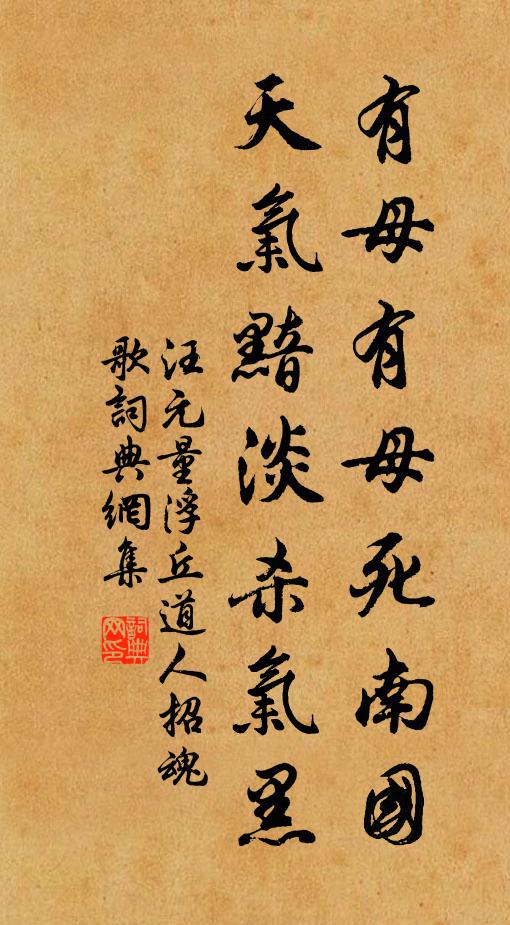 有母有母死南國
天氣黯淡杀氣黑
汪元量浮丘道人招魂
歌詞典網集
詞典網印